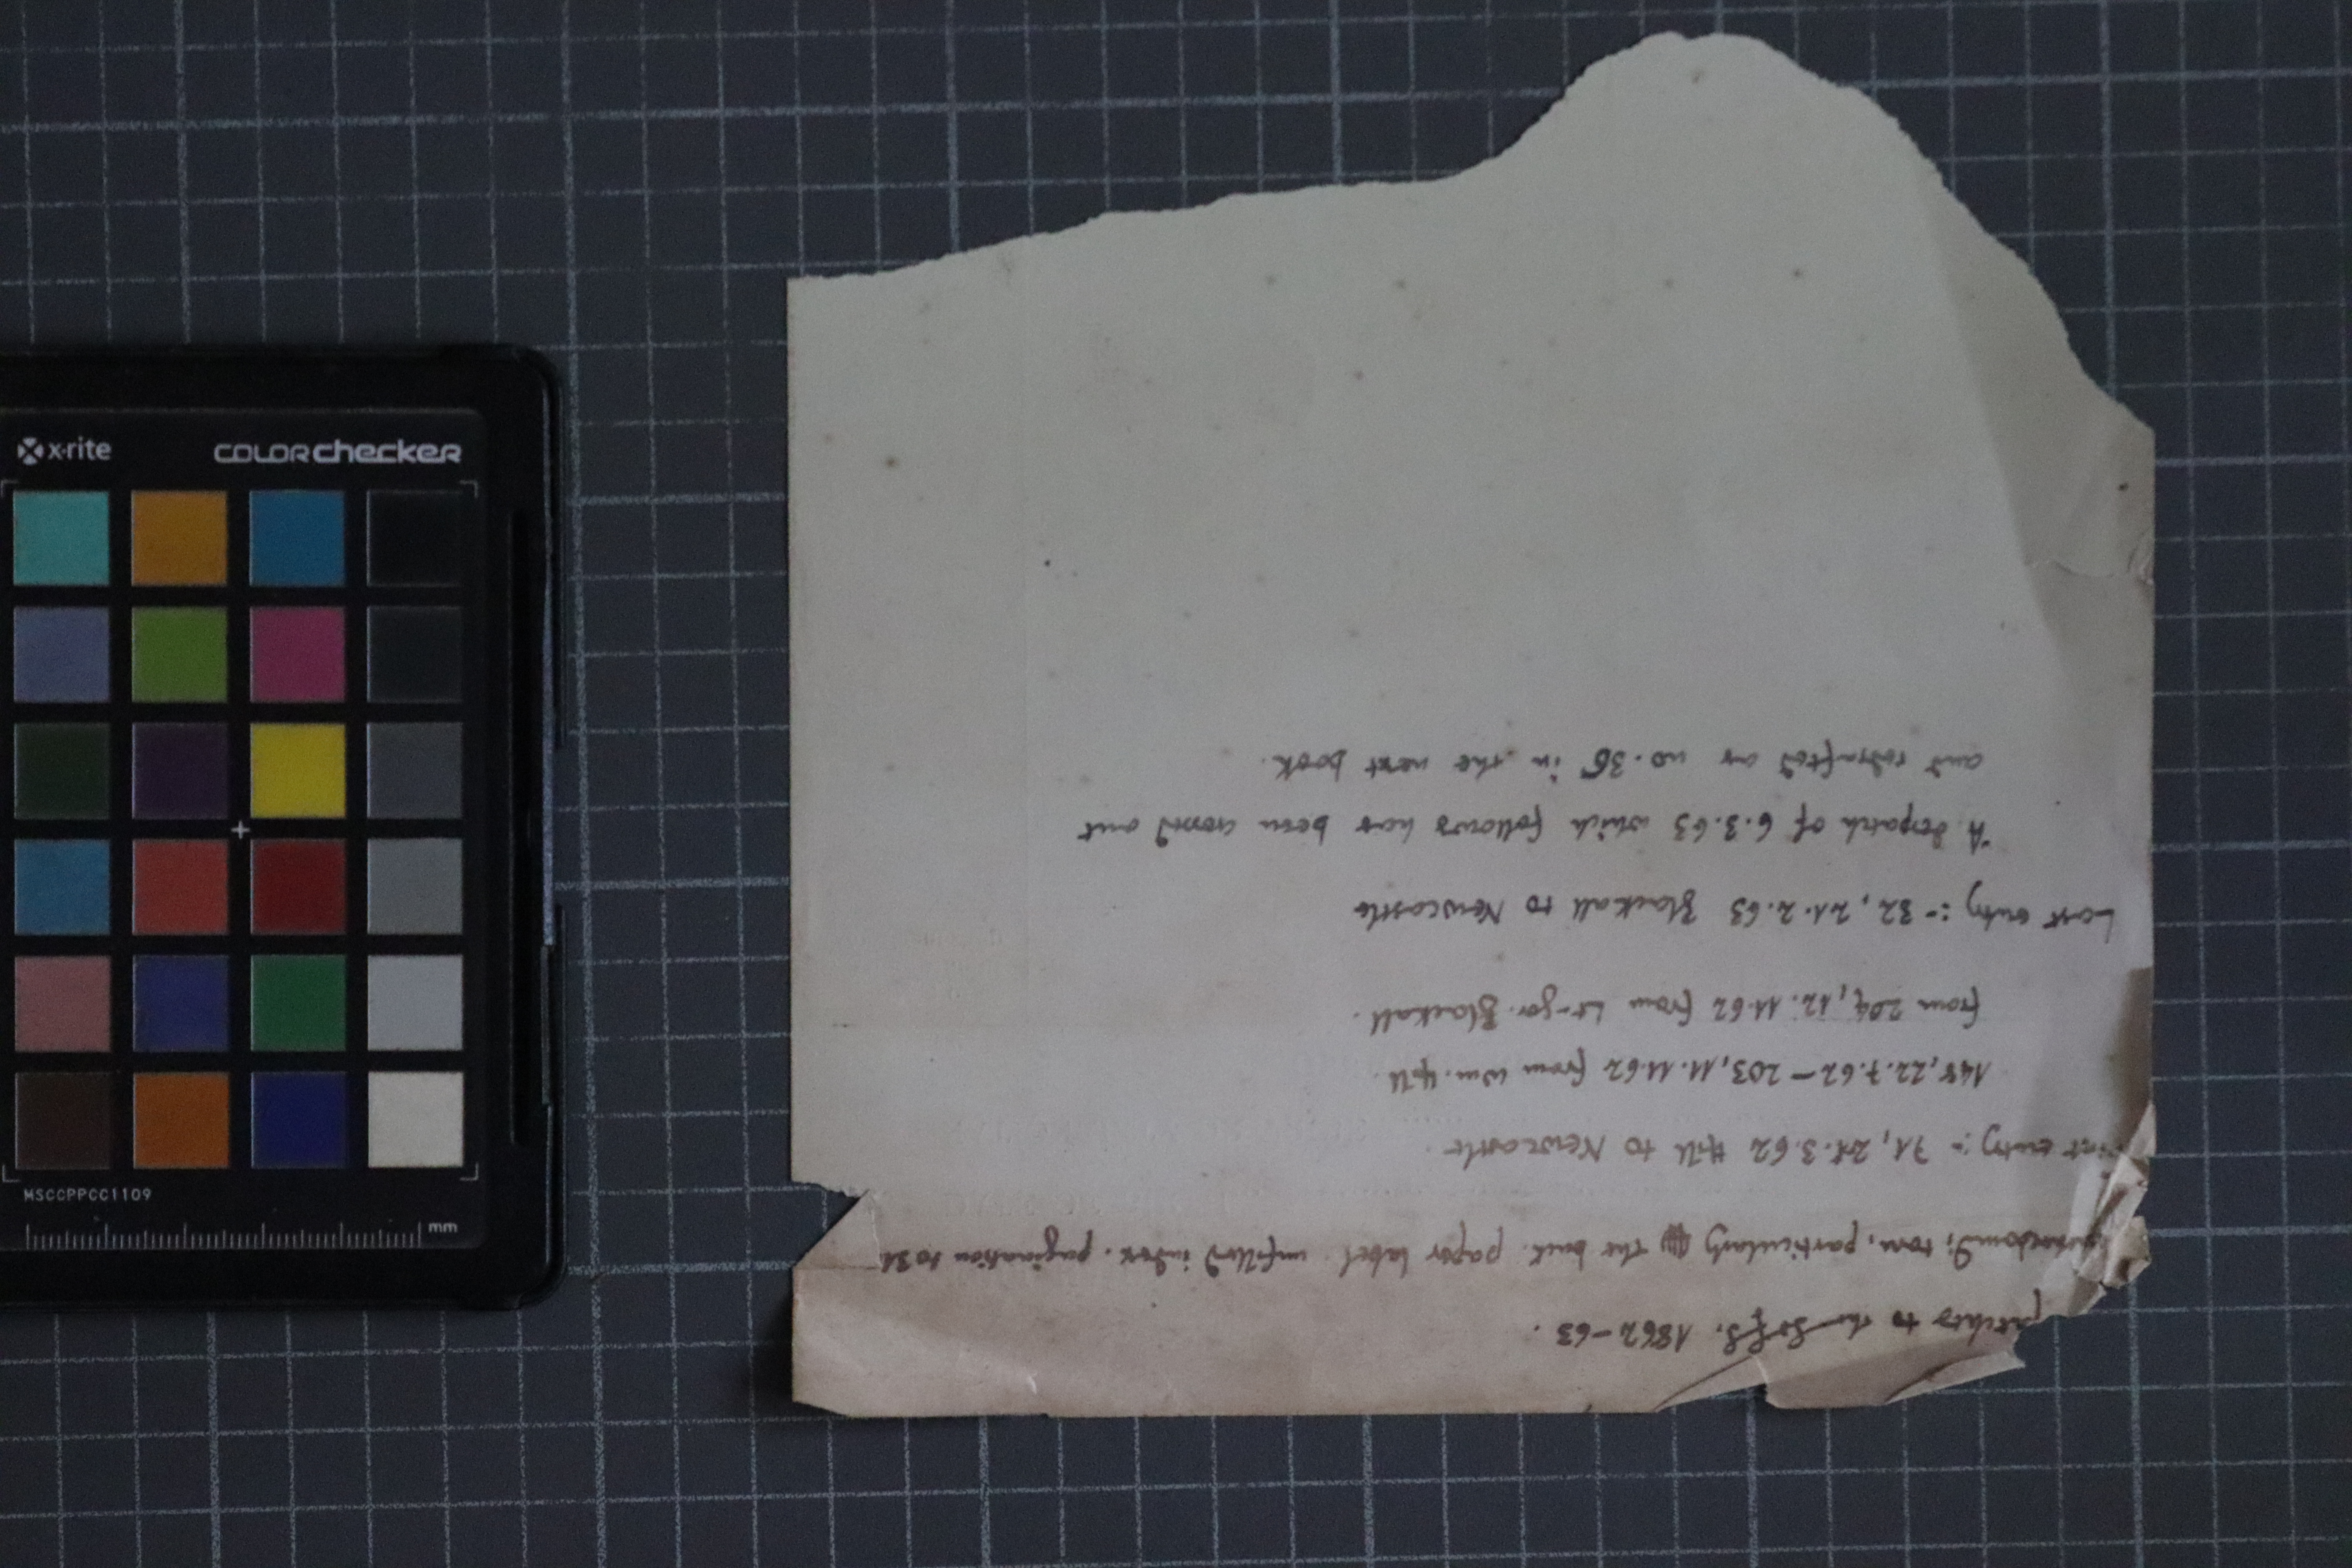 x-rite colorchecker
MSCCPPCC1109
mm
patches to the S of S. 1862-63.
torn, particularly the back. paper label. unfilled index. pagination to 31
First entry :- 71, 21.3.62 Hill to Newcastle.
148, 22.7.62 – 203, 11.11.62 from Wm. Hill.
from 204, 12.11.62 from Lt-gov. Blackall.
Last entry :- 32, 21.2.63 Blackall to Newcastle
A despatch of 6.3.63 which follows has been crossed out
and redrafted as no. 36 in the next book.